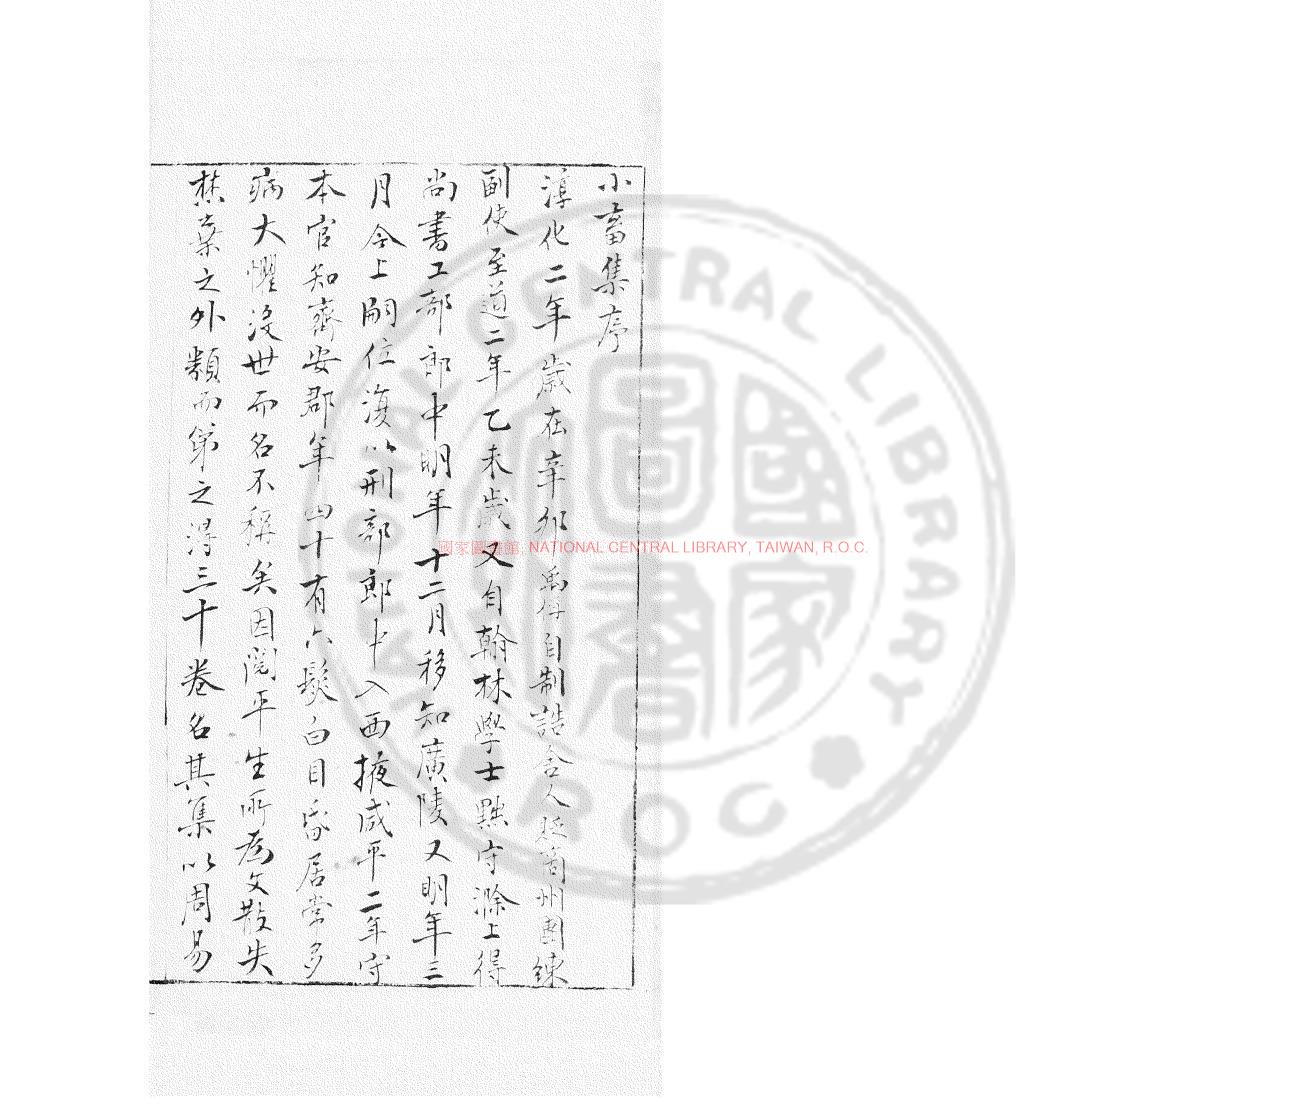 小畜集序
淳化二年歲在辛卯禹偁自制誥舍人貶商州團練
副使至道二年乙未歲又自翰林學士黜守滁上得
尚書工部郎中明年十二月移知廣陵又明年三
月今上嗣位復以刑部郎中入西掖咸平二年守
本官知齊安郡年四十有六髮白目昏居常多
病大懼沒世而名不稱矣因閱平生所為文散失
焚棄之外類而第之得三十卷名其集以周易
國家圖書館, NATIONAL CENTRAL LIBRARY, TAIWAN, R.O.C.
NATIONAL CENTRAL LIBRARY
ROC
國家圖書